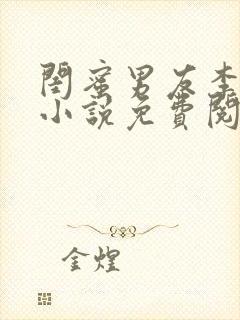 閨蜜男友李
小說免費閱
金煌